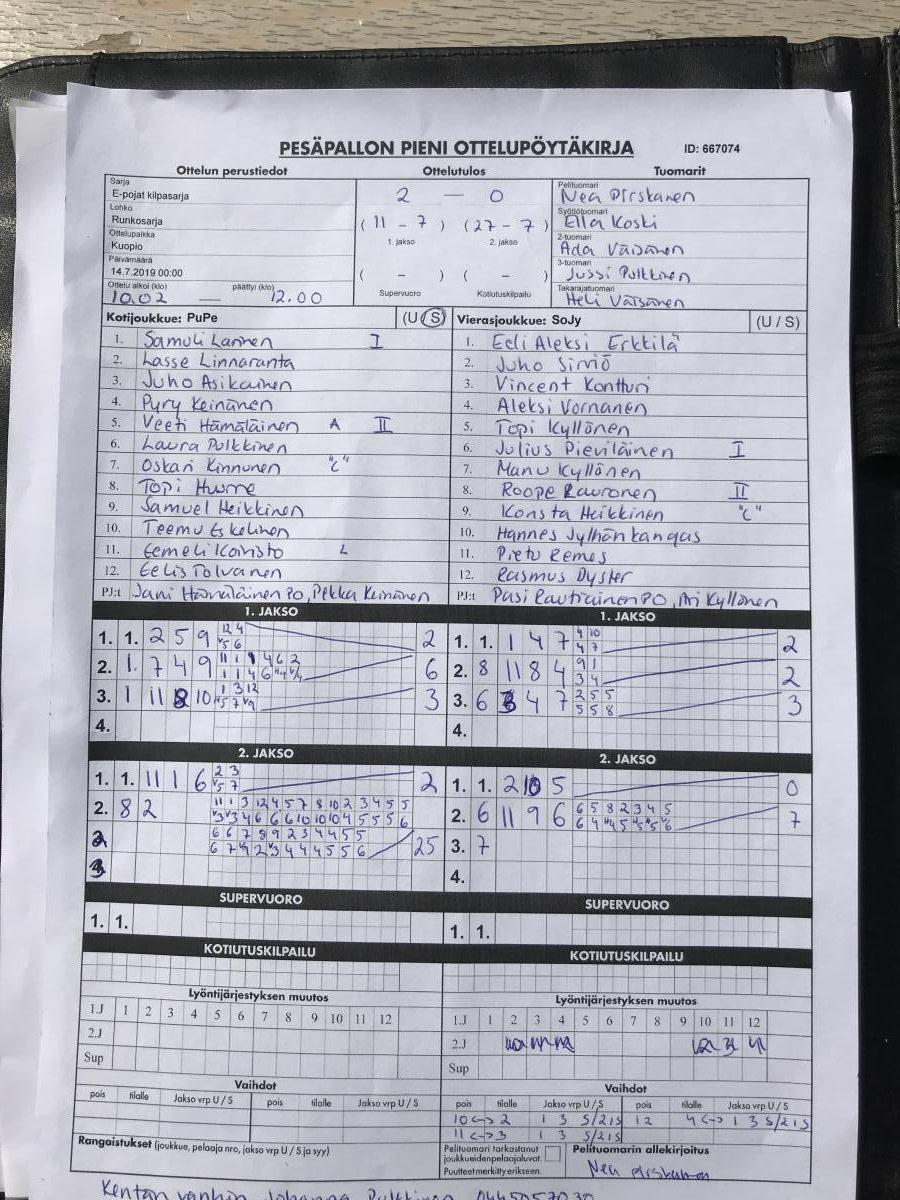 PESÄPALLON PIENI OTTELUPÖYTÄKIRJA ID: 667074
Ottelun perustiedot Ottelutulos Tuomarit
Sarja
E-pojat kilpasarja
Lohko
Runkosarja
Ottelupaikka
Kuopio
Päivämäärä
14.7.2019 00:00
Ottelu alkoi (klo) päättyi (klo)
10.02 — 12.00
2 — 0
(11 - 7) (27 - 7)
1. jakso 2. jakso
( - ) ( - )
Supervuoro Kotiutuskilpailu
Pelituomari
Nea Pirskanen
Syöttötuomari
Ella Koski
2-tuomari
Ada Väisänen
3-tuomari
Jussi Pulkkinen
Takarajatuomari
Heli Väisänen
Kotijoukkue: PuPe (U/S)
1. Samuli Lammen I
2. Lasse Linnaranta
3. Juho Asikainen
4. Pyry Keinänen
5. Veeti Hämäläinen A II
6. Laura Pulkkinen
7. Oskari Kinnunen "C"
8. Topi Hurme
9. Samuel Heikkinen
10. Teemu Eskelinen
11. Eemeli Koivisto L
12. Eelis Tolvanen
PJ:t Jani Hämäläinen PO, Pekka Keinänen
Vierasjoukkue: SoJy (U / S)
1. Eeli Aleksi Erkkilä
2. Juho Sirviö
3. Vincent Kontturi
4. Aleksi Vornanen
5. Topi Kyllönen
6. Julius Pieviläinen I
7. Manu Kyllönen
8. Roope Rauronen II
9. Konsta Heikkinen "C"
10. Hannes Jylhänkangas
11. Pietu Remes
12. Rasmus Dyster
PJ:t Pasi Rautiainen PO, Ari Kyllönen
1. JAKSO
1. 1. 2 5 9 12 4 2
v5 6
2. 1. 7 4 9 6
3. 1 11 8 10 1 3 12 3
4.
2. JAKSO
1. 1. 11 1 6 2 3 2
v5 7
2. 8 2 11 1 3 12 4 5 7 8 10 2 3 4 5 5
v3 v3 4 6 6 6 10 10 10 4 5 5 5 6
6 6 7 8 9 2 3 4 4 5 5
25
SUPERVUORO
1. 1.
KOTIUTUSKILPAILU
Lyöntijärjestyksen muutos
1.J 1 2 3 4 5 6 7 8 9 10 11 12
2.J
Sup
Vaihdot
pois tilalle Jakso vrp U / S pois tilalle Jakso vrp U / S
Rangaistukset (joukkue, pelaaja nro, jakso vrp U / S ja syy)
1. JAKSO
1. 1. 1 4 7 4 10 2
4 7
2. 8 11 8 4 9 1 2
3 4
3. 6 4 7 2 5 5 3
5 5 8
4.
2. JAKSO
1. 1. 2 10 5 0
2. 6 11 9 6 6 5 8 2 3 4 5 7
3. 7
4.
SUPERVUORO
1. 1.
KOTIUTUSKILPAILU
Lyöntijärjestyksen muutos
1.J 1 2 3 4 5 6 7 8 9 10 11 12
2.J
Sup
Vaihdot
pois tilalle Jakso vrp U / S pois tilalle Jakso vrp U / S
10 <-> 2 1 3 S/21S 12 4 <-> 1 3 S/21S
11 <-> 3 1 3 S/21S
Pelituomari tarkastanut
joukkueidenpelaajaluvat.
Puutteet merkitty erikseen.
Pelituomarin allekirjoitus
Nea Pirskanen
Kentän vanhin Johanna Pulkkinen